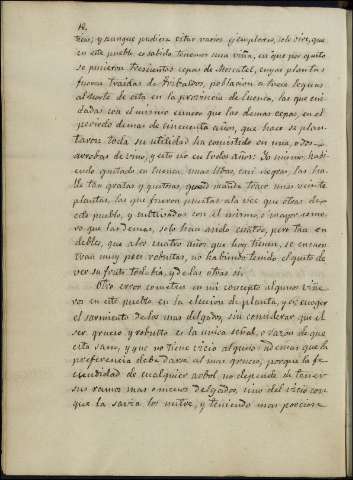 12.
tecio; y aunque pudiera citar varios ejemplares, solo dire, que
en este pueblo es sabido tenemos una viña, en que por quito
se pusieron trescientas cepas de Moscatel, cuyas plantas
fueron traidas de Pribaldos, poblacion a trece leguas
al Norte de esta en la provincia de Cuenca, las que cui
dadas con el mismo esmero que las demas cepas, en el
periodo de mas de cincuenta años, que hace se plan
taron toda su utilidad ha consistido en una, o dos
arrobas de vino, y esto no en todos años: Yo mismo, habi
endo gustado en Cuenca, unas Uvas, casi negras, las ha
lle tan gratas y gustosas, que mande traer unas veinte
plantas, las que fueron puestas a la vez que otras de
este pueblo, y cultivadas con el mismo, o mayor esme
ro que las demas, solo han asido cuatro, pero tan en
debles, que a los cuatro años que hoy tienen, se encuen
tran muy poco robustas, no habiendo tenido el gusto de
ver su fruto todabia, y de las otras si.
Otro error cometen en mi concepto algunos viñe
ros en este pueblo en la eleccion de planta, y es escoger
el sarmiento de los mas delgados, sin considerar que el
ser grueso y robusto es la unica señal, o razon de que
esta sano, y que no tiene vicio alguno: ademas que la
preferencia debe darse al mas grueso; porque la fe
cundidad de cualquier arbol no depende de tener
sus ramos mas o menos delgados, sino del vicio con
que la savia los nutre, y teniendo mas porcion